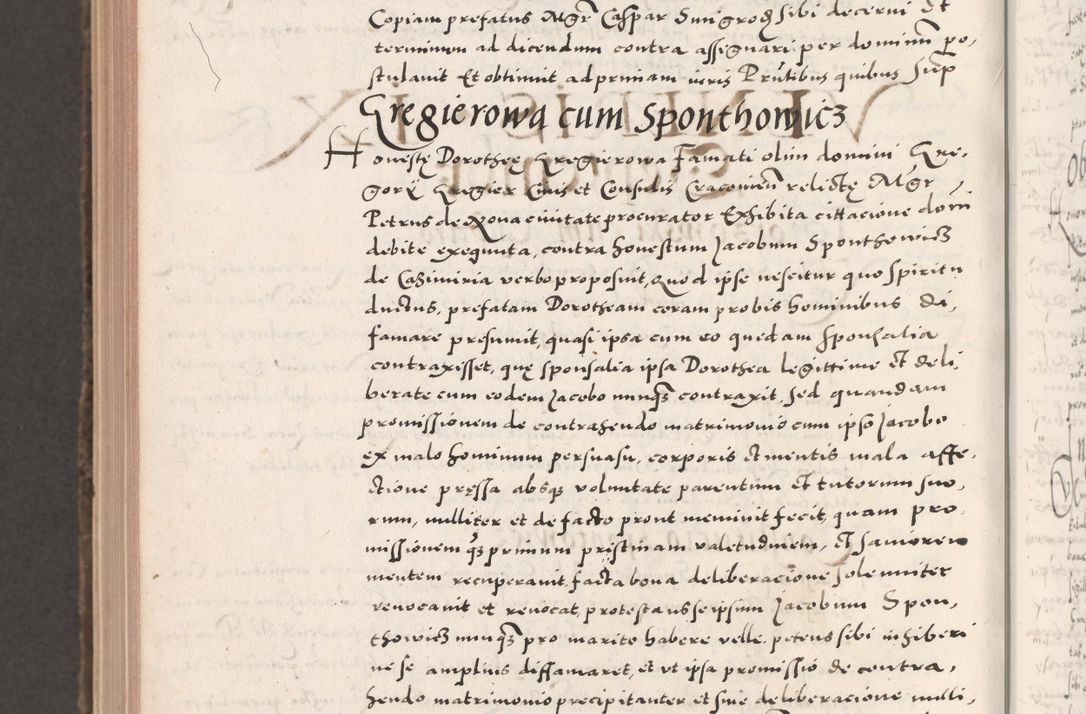 Copiam prefatus Mgr Caspar Smigrod sibi decerni Et
terminum ad dicendum contra assignari per dominum po,
stulavit Et obtinuit ad primam iuris Prntibus quibus Sup
Gregierowa cum Sponthowicz
Honeste Dorothee Gregierowa Famati olim domini Gre,
gorÿ Gregier Civis et Consulis Cracovien relicte Mgr
Petrus de Xona civitate procurator Exhibita cittacione domi
debite exequuta, contra honestum Jacobum Sponthowicz
de Casimiria verbo proposuit, Quod ipse nescitur quo spiritu
ductus, prefatam Dorotheam coram probis hominibus di,
famare presumit, quasi ipsa cum eo quedam sponsalia
contraxisset, que sponsalia ipsa Dorothea legittime Et deli
berate cum eodem Jacobo nunqz contraxit, sed quandam
promissionem de contrahendo matrimonio cum ipso Jacobo
ex malo hominum persuasu, corporis et mentis mala affe,
ctione pressa absqz voluntate parentum Et tutorum suo,
rum, nulliter et de facto prout meminit fecit, quam pro
missionem qz primum pristinam valetudinem, Et saniorem
mentem recuperavit, facta bona deliberacione solenniter
revocavit et revocat, protestans se ipsum Jacobum Spon,
thowicz nunqz pro marito habere velle, petens sibi inhiberi
ne se amplius diffamaret, et ut ipsa promissio de contra,
hendo matrimonio precipitanter et sine deliberacione nulli,